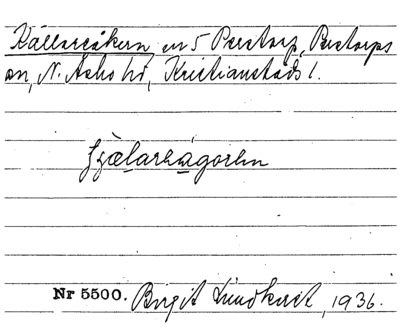 Källareåkern en 5 Perstorp, Perstorps
sn, N. Åsbo hd, Kristianstads l.
Nr 5500. Birgit Lindkvist, 1936.